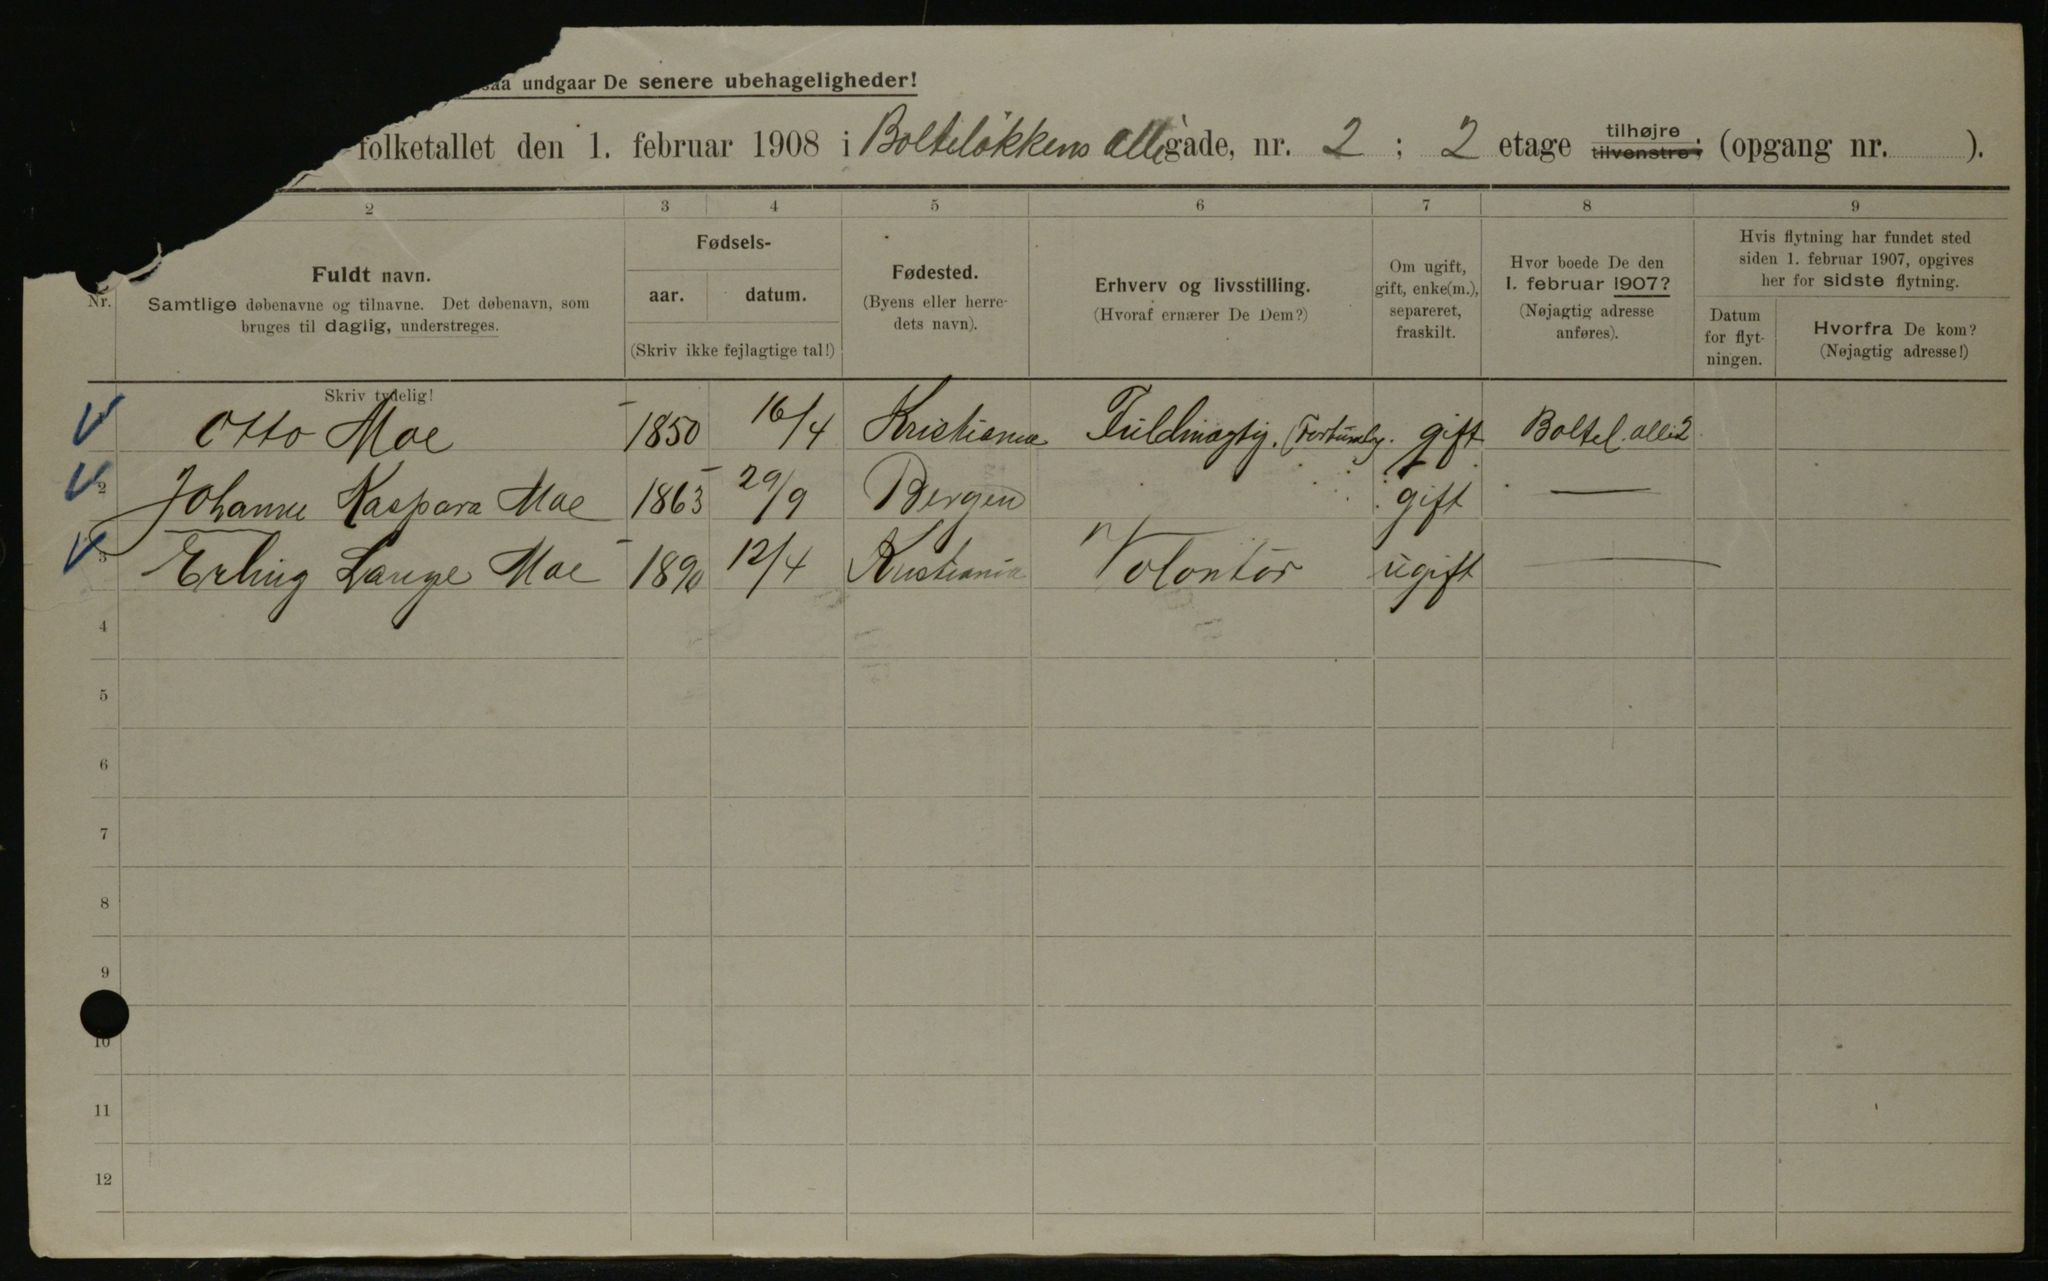 undgaar De senere ubehageligheder!
folketallet den 1. februar 1908 i Bolteløkkens allé gade, nr. 2 ; 2 etage tilhøjre tilvenstre ; (opgang nr. ).
2 3 4 5 6 7 8 9
Nr.
Fuldt navn.
Samtlige døbenavne og tilnavne. Det døbenavn, som
bruges til daglig, understreges.
Skriv tydelig!
Fødsels-
aar. datum.
(Skriv ikke fejlagtige tal!)
Fødested.
(Byens eller herre-
dets navn).
Erhverv og livsstilling.
(Hvoraf ernærer De Dem?)
Om ugift,
gift, enke(m.),
separeret,
fraskilt.
Hvor boede De den
1. februar 1907?
(Nøjagtig adresse
anføres).
Hvis flytning har fundet sted
siden 1. februar 1907, opgives
her for sidste flytning.
Datum
for flyt-
ningen.
Hvorfra De kom?
(Nøjagtig adresse!)
Otto Moe 1850 16/4 Kristiania Fuldmægtig. gift Boltel. alle 2
2 Johanne Kaspara Moe 1863 29/9 Bergen gift —
3 Erling Lange Moe 1890 12/4 Kristiania Volontør ugift —
4
5
6
7
8
9
10
11
12